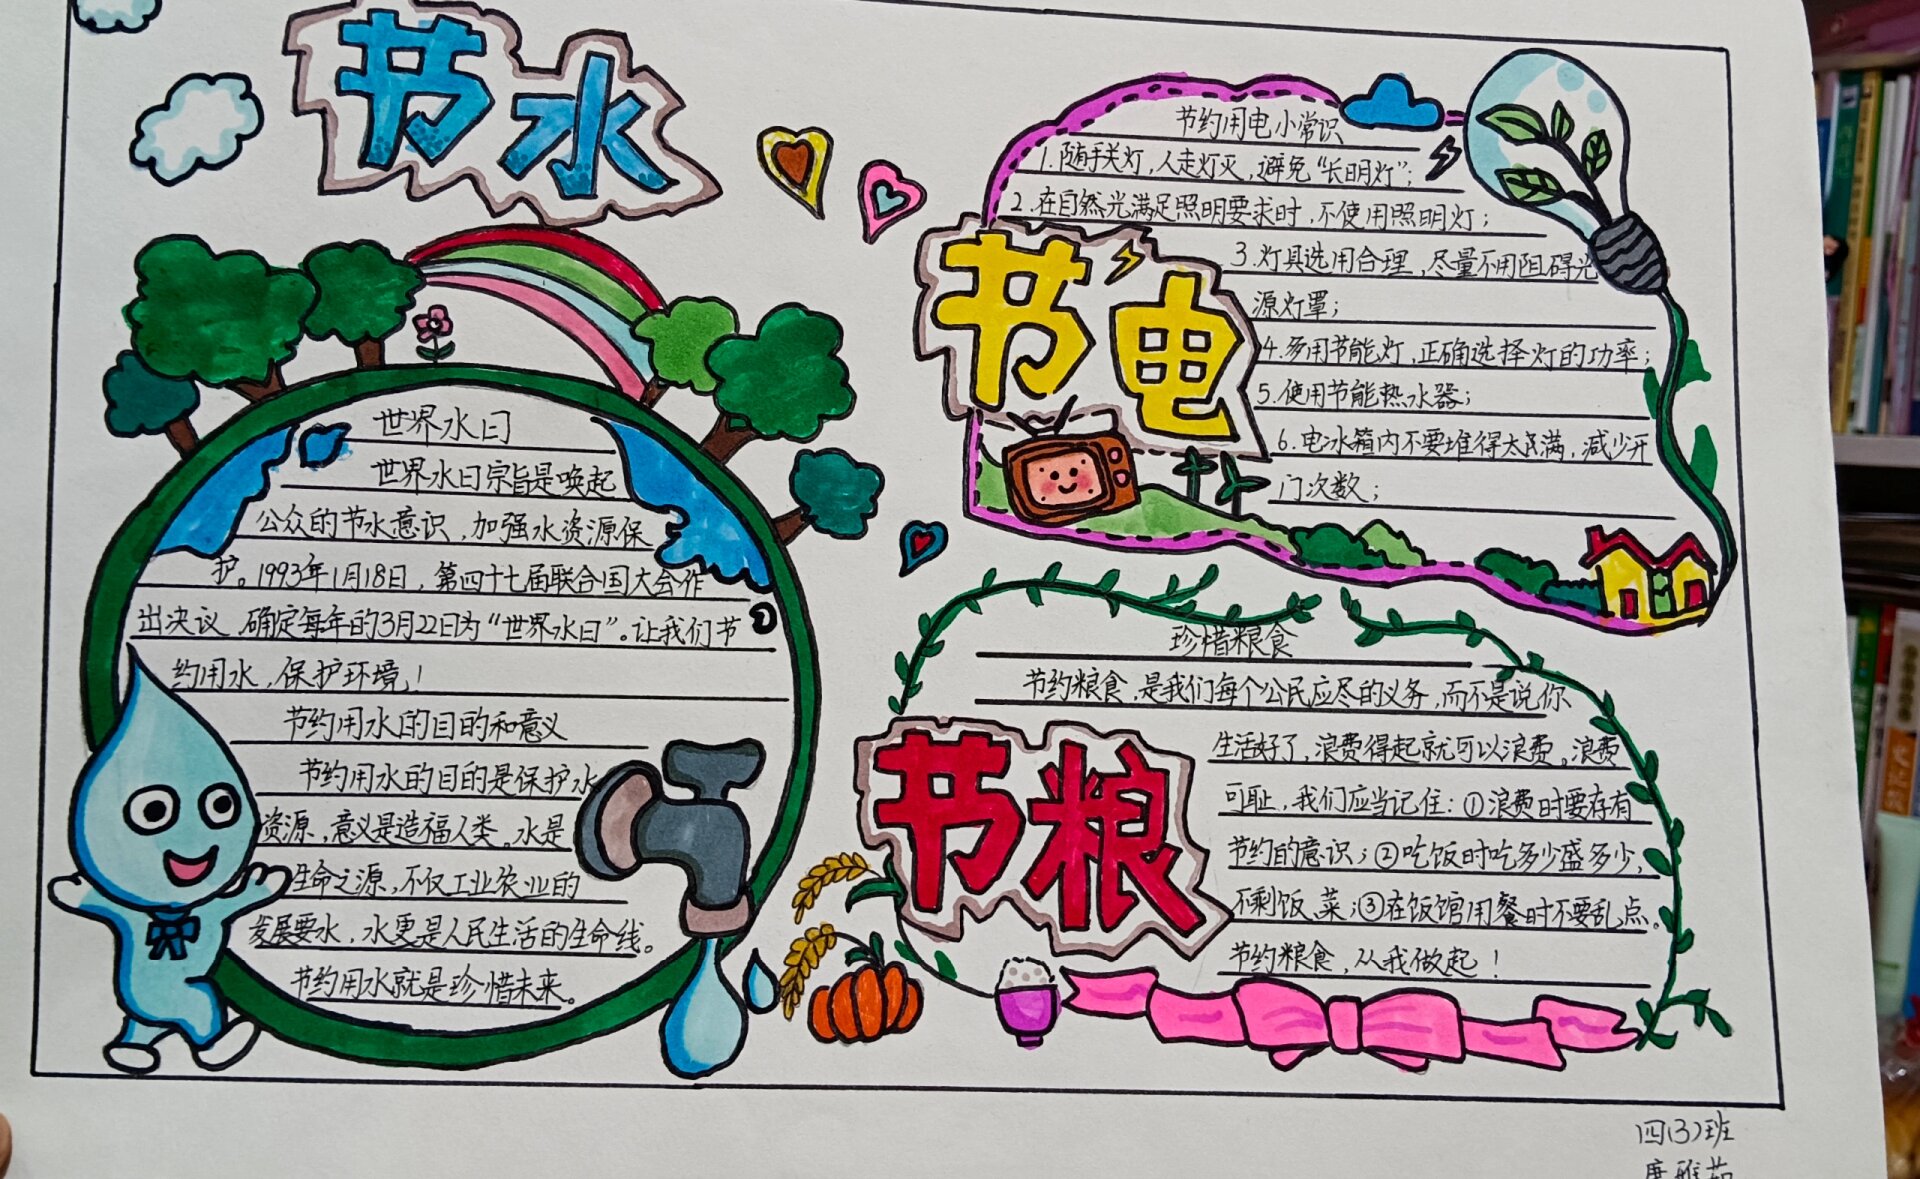 节水
世界水日
世界水日宗旨是唤起
公众的节水意识，加强水资源保
护。1993年1月18日，第四十七届联合国大会作
出决议，确定每年的3月22日为“世界水日”。让我们节
约用水，保护环境！
节约用水的目的和意义
节约用水的目的是保护水
资源，意义是造福人类。水是
生命之源，不仅工业农业的
发展要水，水更是人民生活的生命线。
节约用水就是珍惜未来。
节电
节约用电小常识
1.随手关灯，人走灯灭，避免“长明灯”；
2.在自然光满足照明要求时，不使用照明灯；
3.灯具选用合理，尽量不用阻碍光
源灯罩；
4.多用节能灯，正确选择灯的功率；
5.使用节能热水器；
6.电冰箱内不要堆得太满，减少开
门次数；
节粮
珍惜粮食
节约粮食，是我们每个公民应尽的义务，而不是说你
生活好了，浪费得起就可以浪费。浪费
可耻，我们应当记住：①浪费时要存有
节约的意识；②吃饭时吃多少盛多少，
不剩饭、菜；③在饭馆用餐时不要乱点。
节约粮食，从我做起！
四(3)班